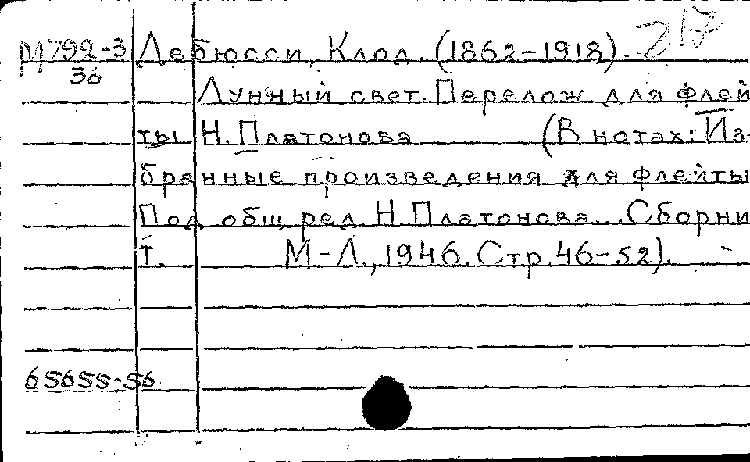 М792-3 Дебюсси, Клод. (1862-1918). 217
36
Лунный свет. Перелож для флей
ты Н. Платонова (В нотах: Из-
бранные произведения для флейты
Под общ ред Н. Платонова... Сборни
I. М-Л., 1946. Стр. 46-52).
65655-56